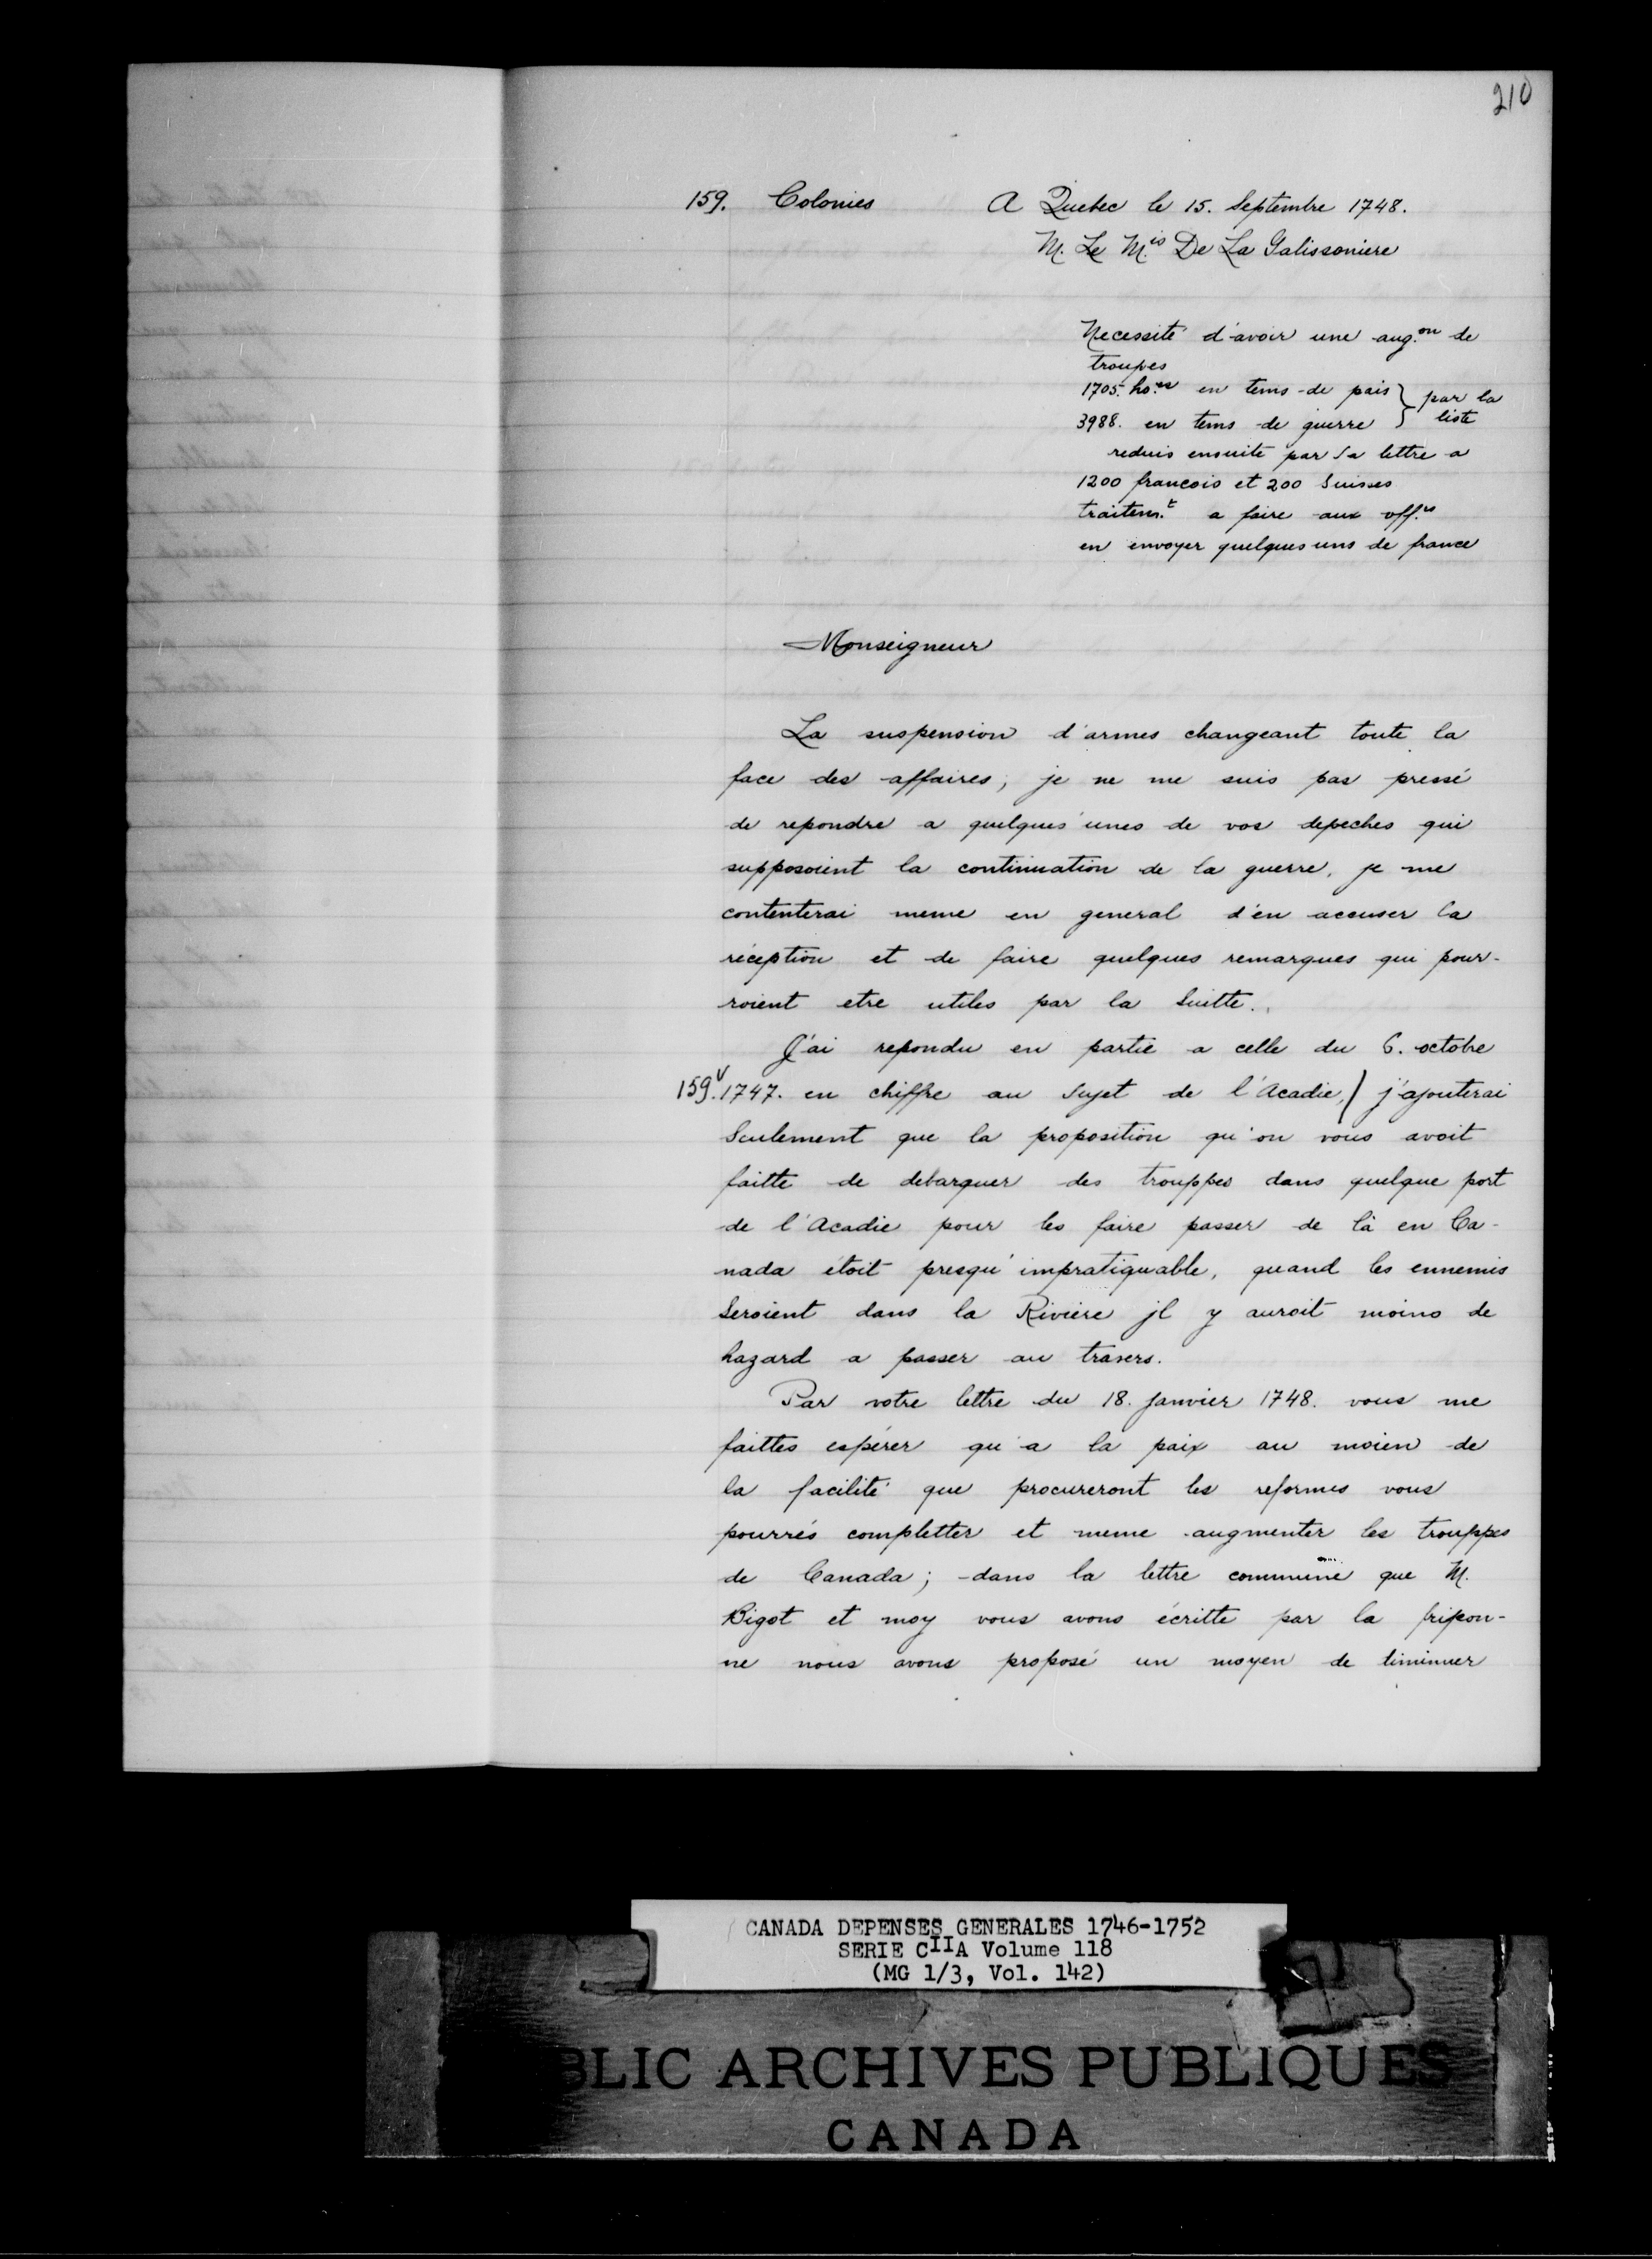 210
159. Colonies A Quebec le 15. Septembre 1748.
M. Le M.is De La Galissoniere
Necessité d'avoir une aug.on de
troupes
1705. ho.es en tems de pais } par la
3988. en tems de guerre } liste
reduis ensuite par Sa lettre a
1200 francois et 200 Suisses
traitem.t a faire aux off.rs
en envoyer quelques uns de france
Monseigneur
La suspension d'armes changeant toute la
face des affaires, je ne me suis pas pressé
de repondre a quelques unes de vos depeches qui
supposoient la continuation de la guerre, je me
contenterai meme en general d'en accuser la
réception et de faire quelques remarques qui pour-
roient etre utiles par la Suitte.
J'ai repondu en partie a celle du 6. octobre
159v. 1747. en chiffre au Sujet de l'Acadie,/ j'ajouterai
Seulement que la proposition qu'on vous avoit
faitte de debarquer des trouppes dans quelque port
de l'Acadie pour les faire passer de là en Ca-
nada étoit presqu'impratiquable, quand les ennemis
Seroient dans la Riviere jl y auroit moins de
hazard a passer au travers.
Par votre lettre du 18. janvier 1748. vous me
faittes espérer qu'a la paix au moien de
la facilité que procureront les reformes vous
pourrés completter et meme augmenter les trouppes
de Canada; dans la lettre commune que M.
Bigot et moy vous avons écritte par la fripon-
ne nous avons proposé un moyen de diminuer
CANADA DEPENSES GENERALES 1746-1752
SERIE CIIA Volume 118
(MG 1/3, Vol. 142)
BLIC ARCHIVES PUBLIQUES
CANADA